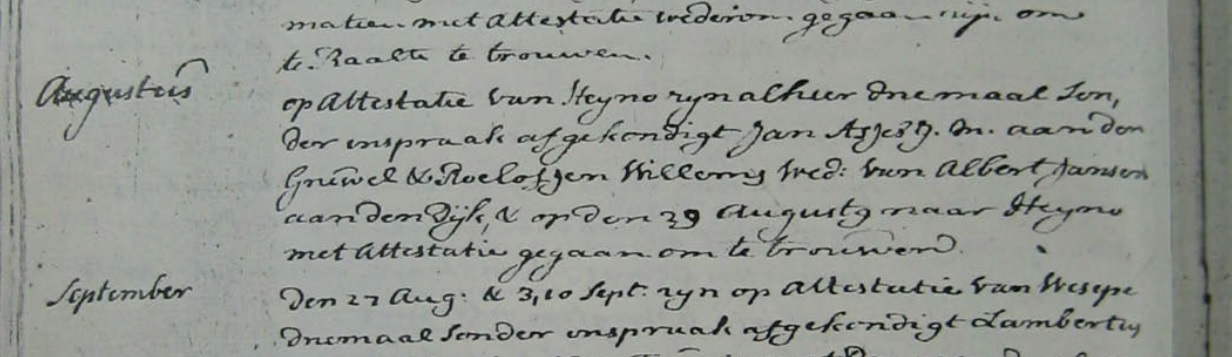 matien met attestatie wederom gegaan zijn om
te Raalte te trouwen.
Augustus
op Attestatie van Heyno zyn alhier driemaal son,
der inspraak afgekondigt Jan Asjes J. M. aan den
Gruwel & Roelofjen Willems Wed: van Albert Jansen
aan den Dijk, & op den 29 Augusty naar Heyno
met Attestatie gegaan om te trouwen.
September
Den 27 Aug: & 3, 10 Sept: zyn op Attestatie van Wesepe
driemaal sonder inspraak afgekondigt Lambertus